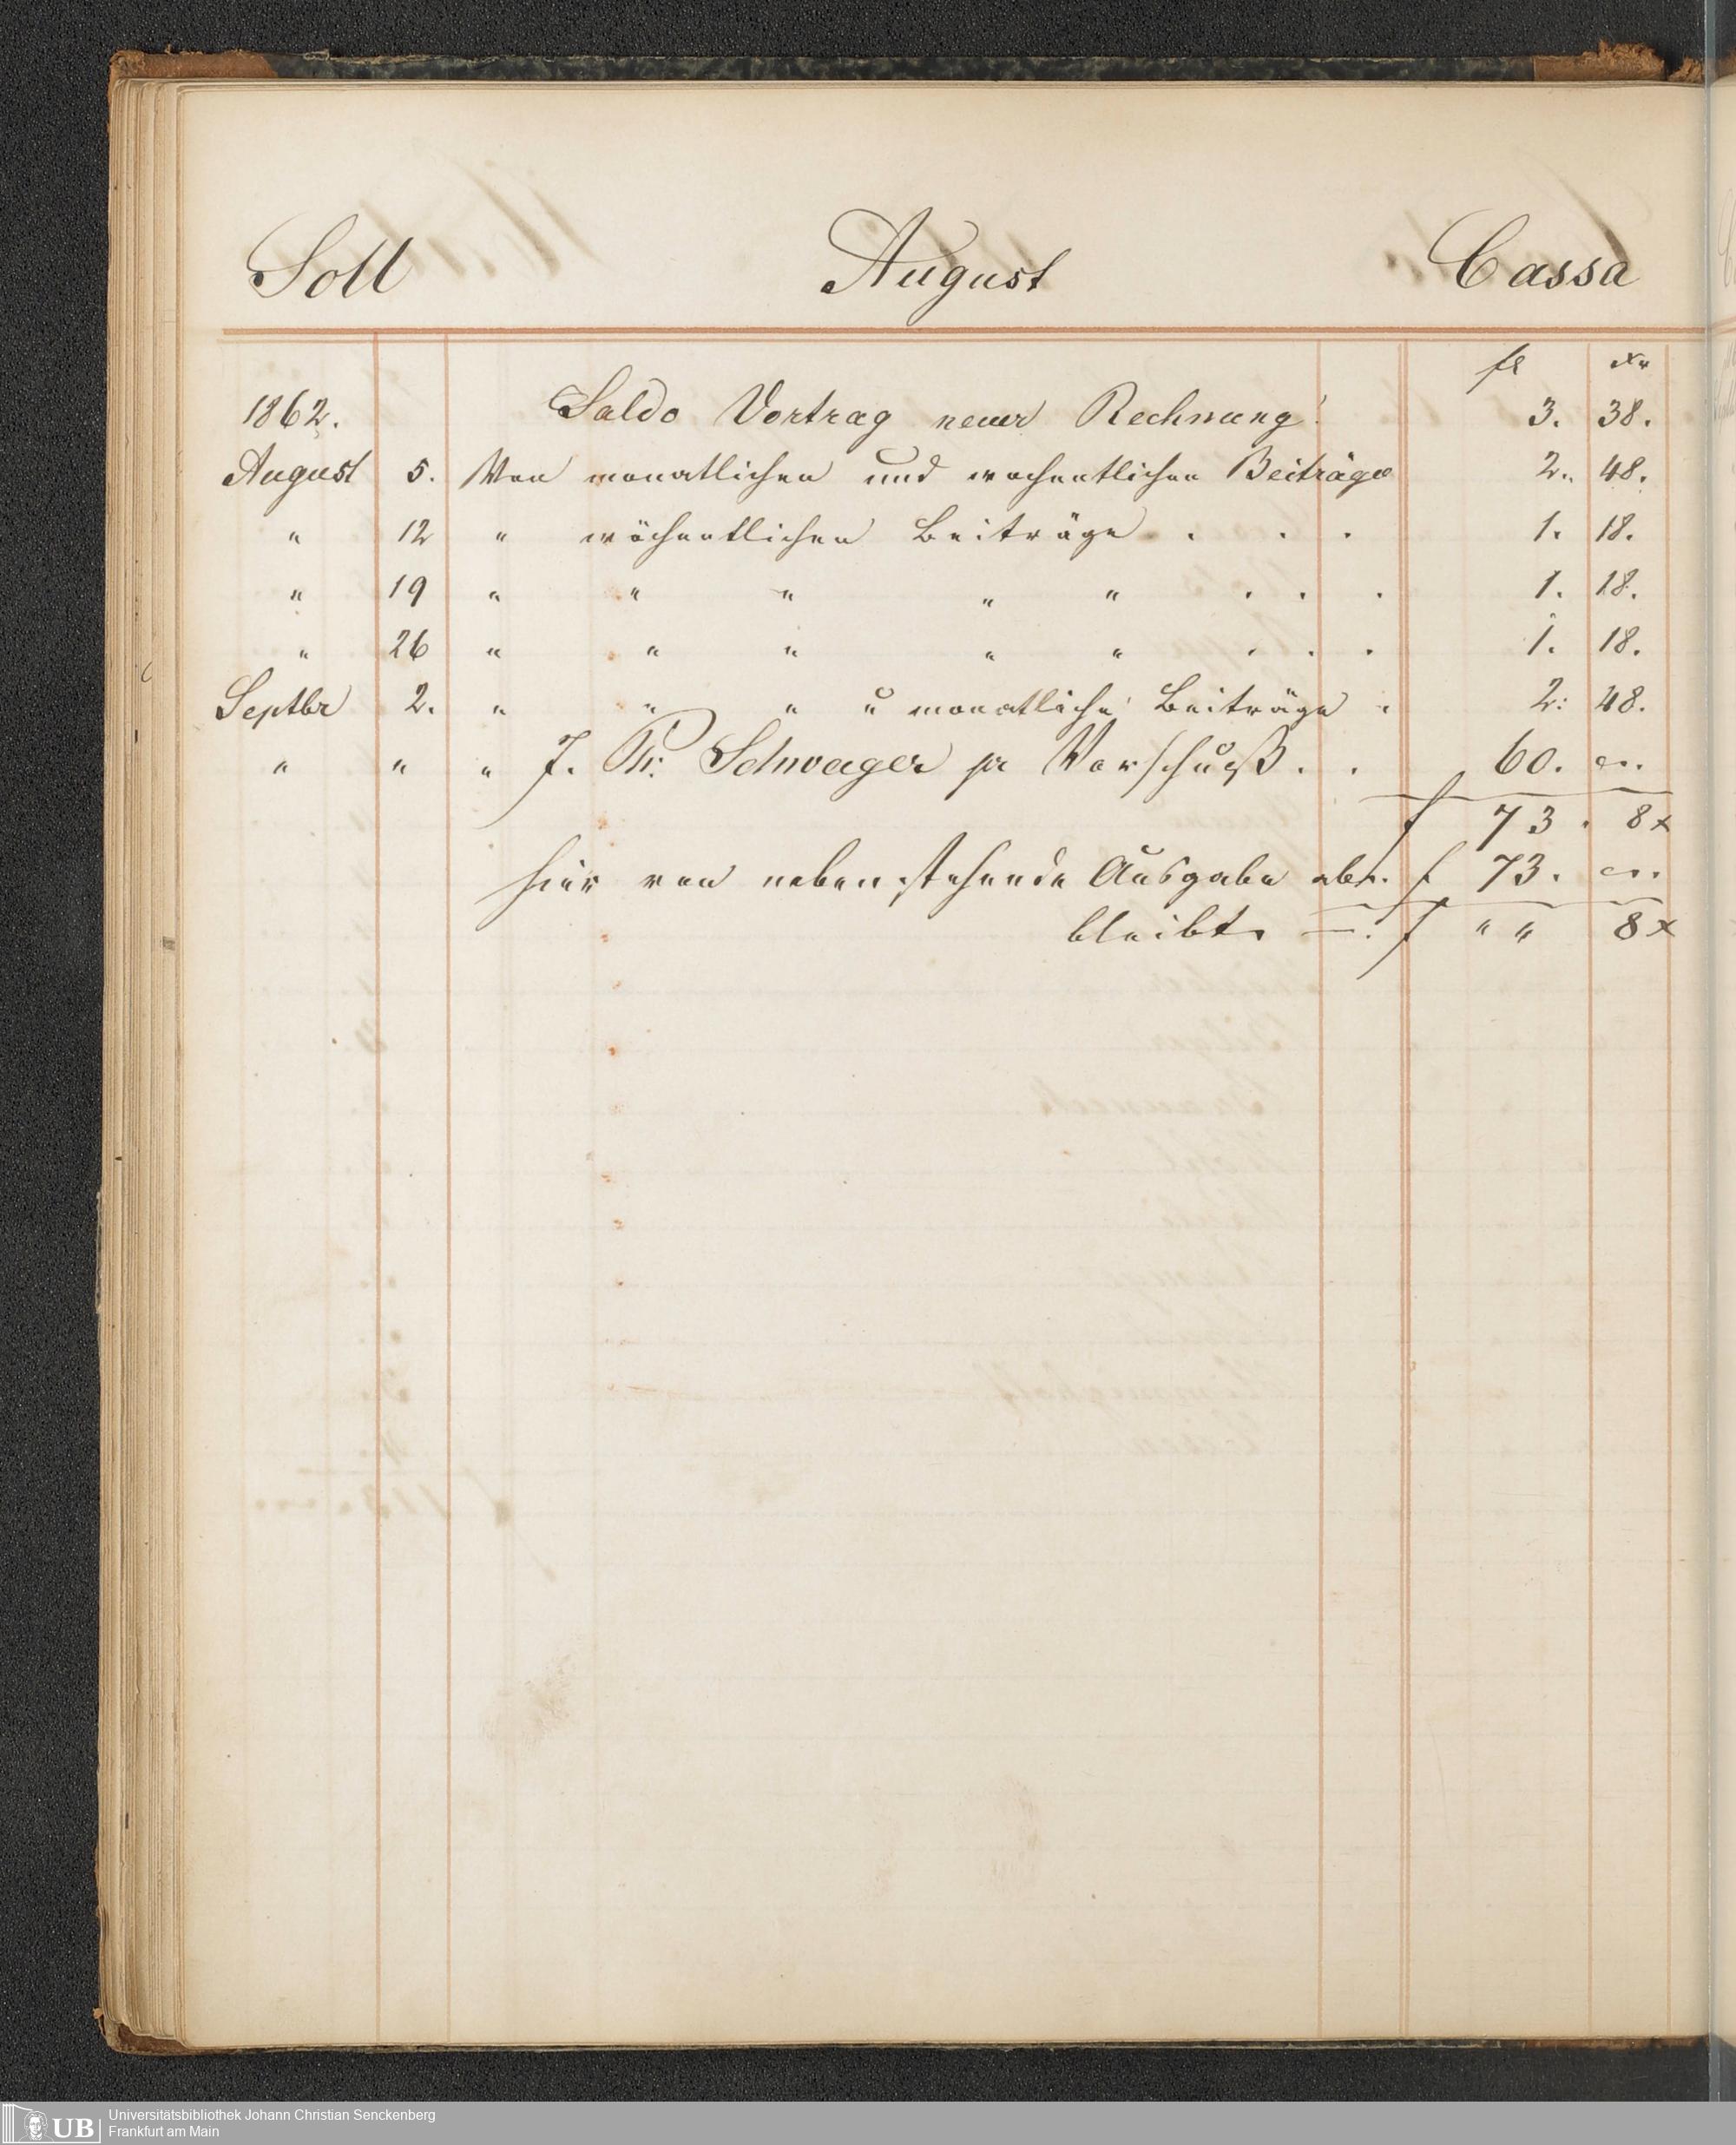 Soll August Cassa
fl xr
1862. Saldo Vortrag neuer Rechnung 3. 38.
August 5. Von monatlichen und wochentlichen Beiträge 2. 48.
" 12 " wöchentlichen Beiträge . . . 1. 18.
" 19 " " " " " . . . 1. 18.
" 26 " " " " " . . . 1. 18.
Septbr 2. " " " u monatliche Beiträge . 2: 48.
" " " J. Schwager pr Vorschuß . . 60. "
f 73. 8x
hier von nebenstehende Ausgabe f 73. "
bleibt. — . f " " 8x
UB Universitätsbibliothek Johann Christian Senckenberg
Frankfurt am Main